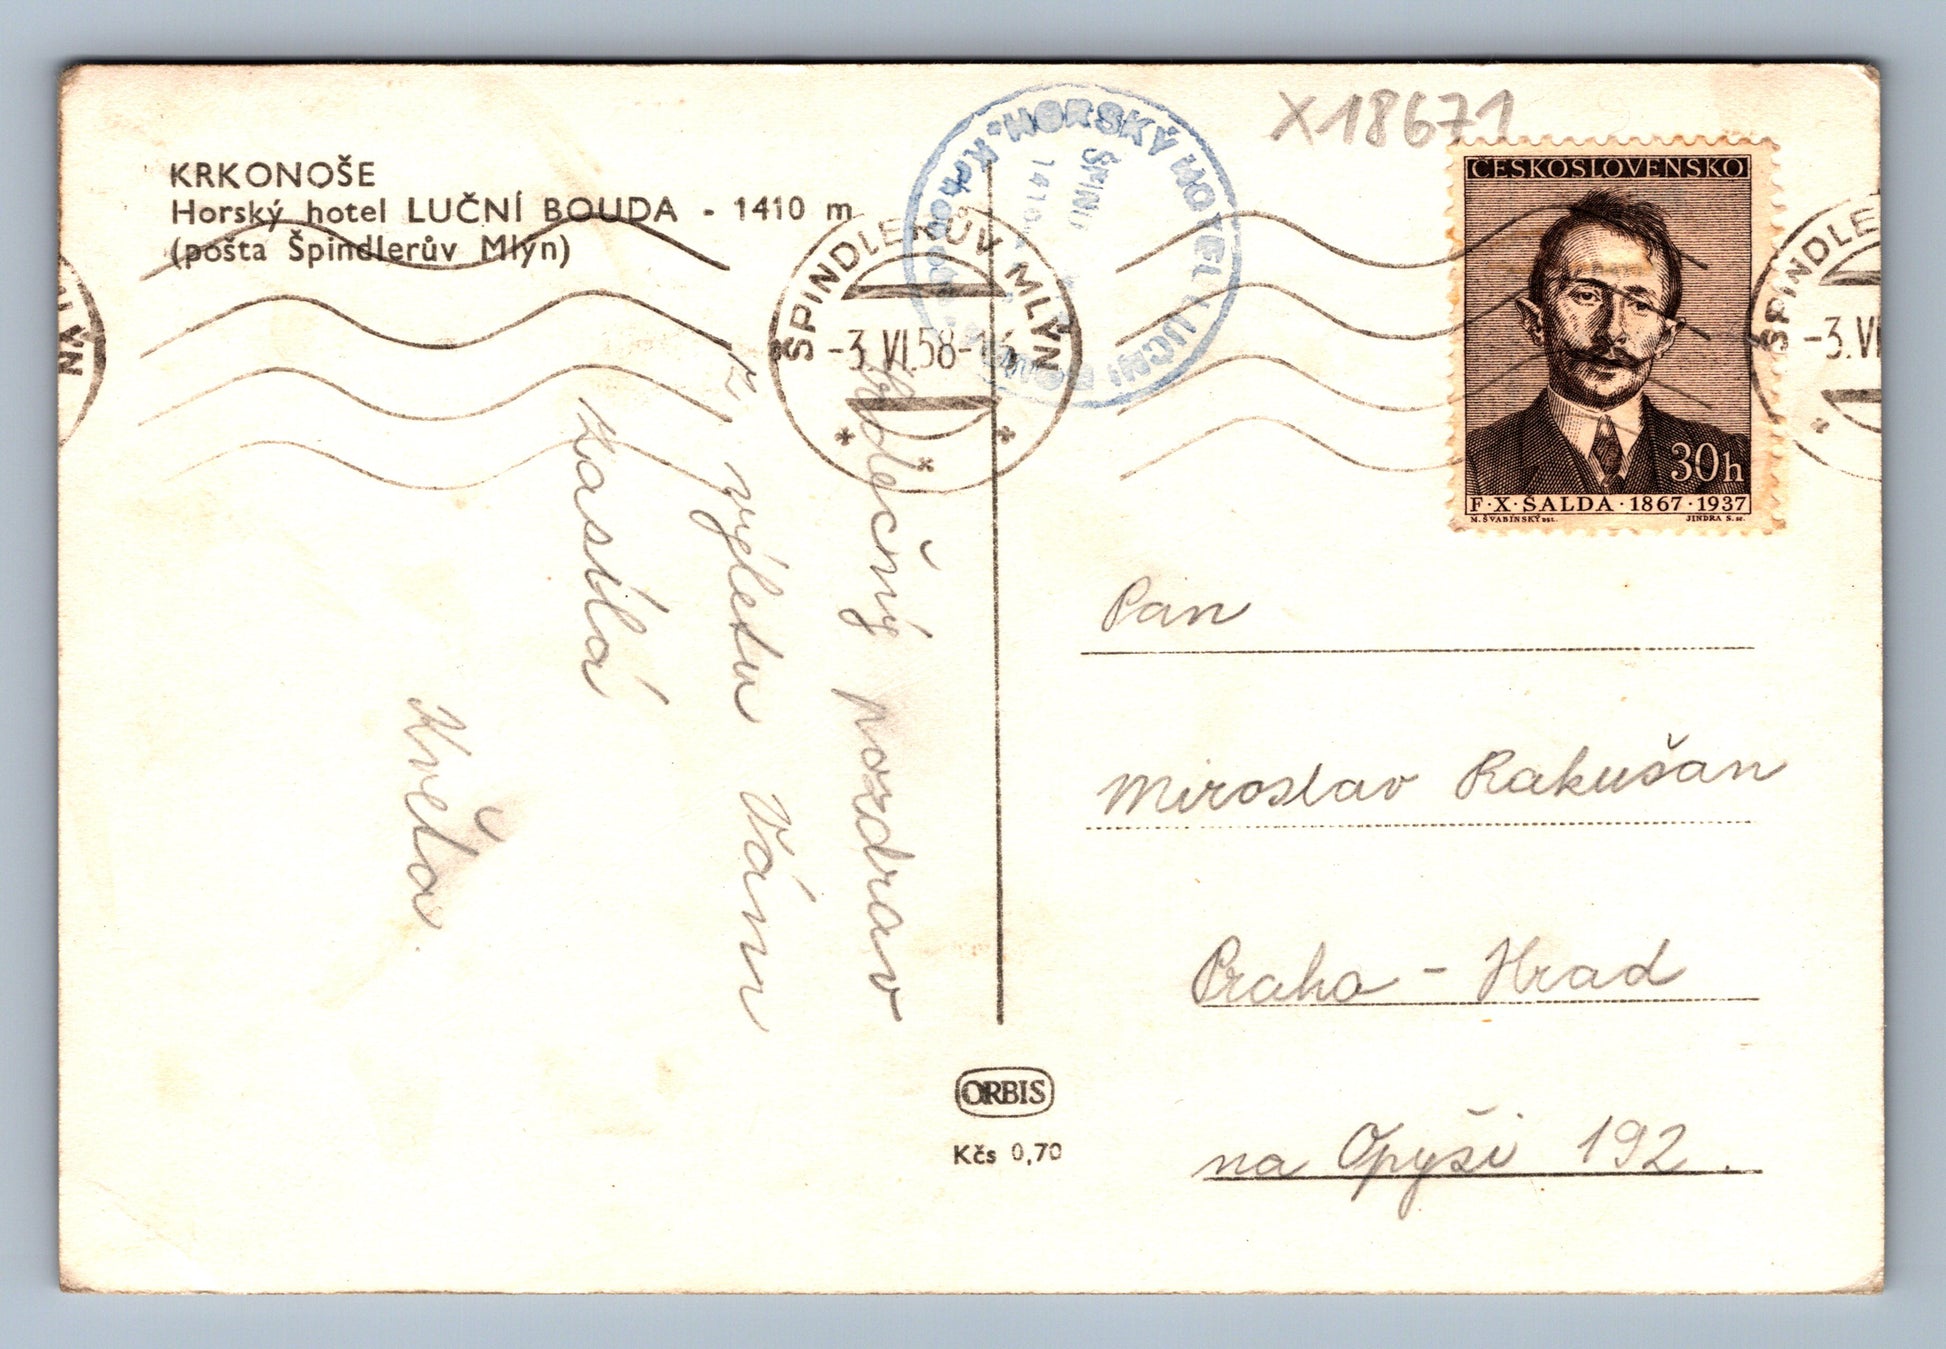 KRKONOŠE
Horský hotel LUČNÍ BOUDA - 1410 m
(pošta Špindlerův Mlýn)
Srdečný pozdrav
z výletu Vám
zasílá
Květa.
ŠPINDLERŮV MLÝN
-3.VI.58-
HORSKÝ HOTEL LUČNÍ
X18671
ČESKOSLOVENSKO
30h
F·X·ŠALDA·1867·1937
M. ŠVABINSKÝ DEL.
JINDRA S. SC.
ŠPINDLE
-3.VI
LÝN
Pan
Miroslav Rakušan
Praha - Hrad
na Opyši 192.
ORBIS
Kčs 0,70